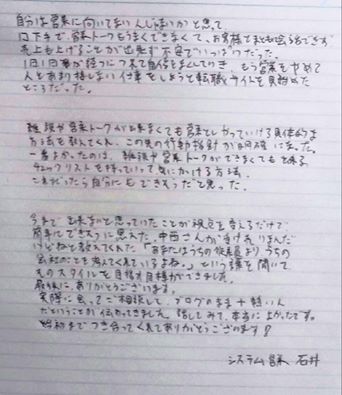 自分は営業に向いてない人間じゃないかと思って、
口下手で営業トークもうまくできなくて、お客様とまともに会話もできず
売上も上げることが出来ず不安でいっぱいだった。
1日1日が経つにつれて自信をなくしていき、もう営業をやめて
人とあまり接しない仕事をしようと転職サイトを見始めた
ところだった。
雑談や営業トークが出来なくても営業としてやっていける具体的な
方法を教えてくれ、この先の行動指針が明確になった。
一番よかったのは、雑談や営業トークができなくても
チェックリストを持っていって
これだったら自分にもできそうだと思った。
今まで出来ないと思っていたことが視点を変えるだけで
簡単にできそうに思えた。中西さんが
教えてくれた「あなたはうちの従業員よりうちの
会社のことを考えてくれているよね。」という話を聞いて
そのスタイルを目指す目標ができました。
最後に、ありがとうございます。
実際に会ってご相談して、ブログのまま
だということが伝わってきました。話してみて、本当に良かったです。
つき合ってくれてありがとうございます!
システム営業 石井